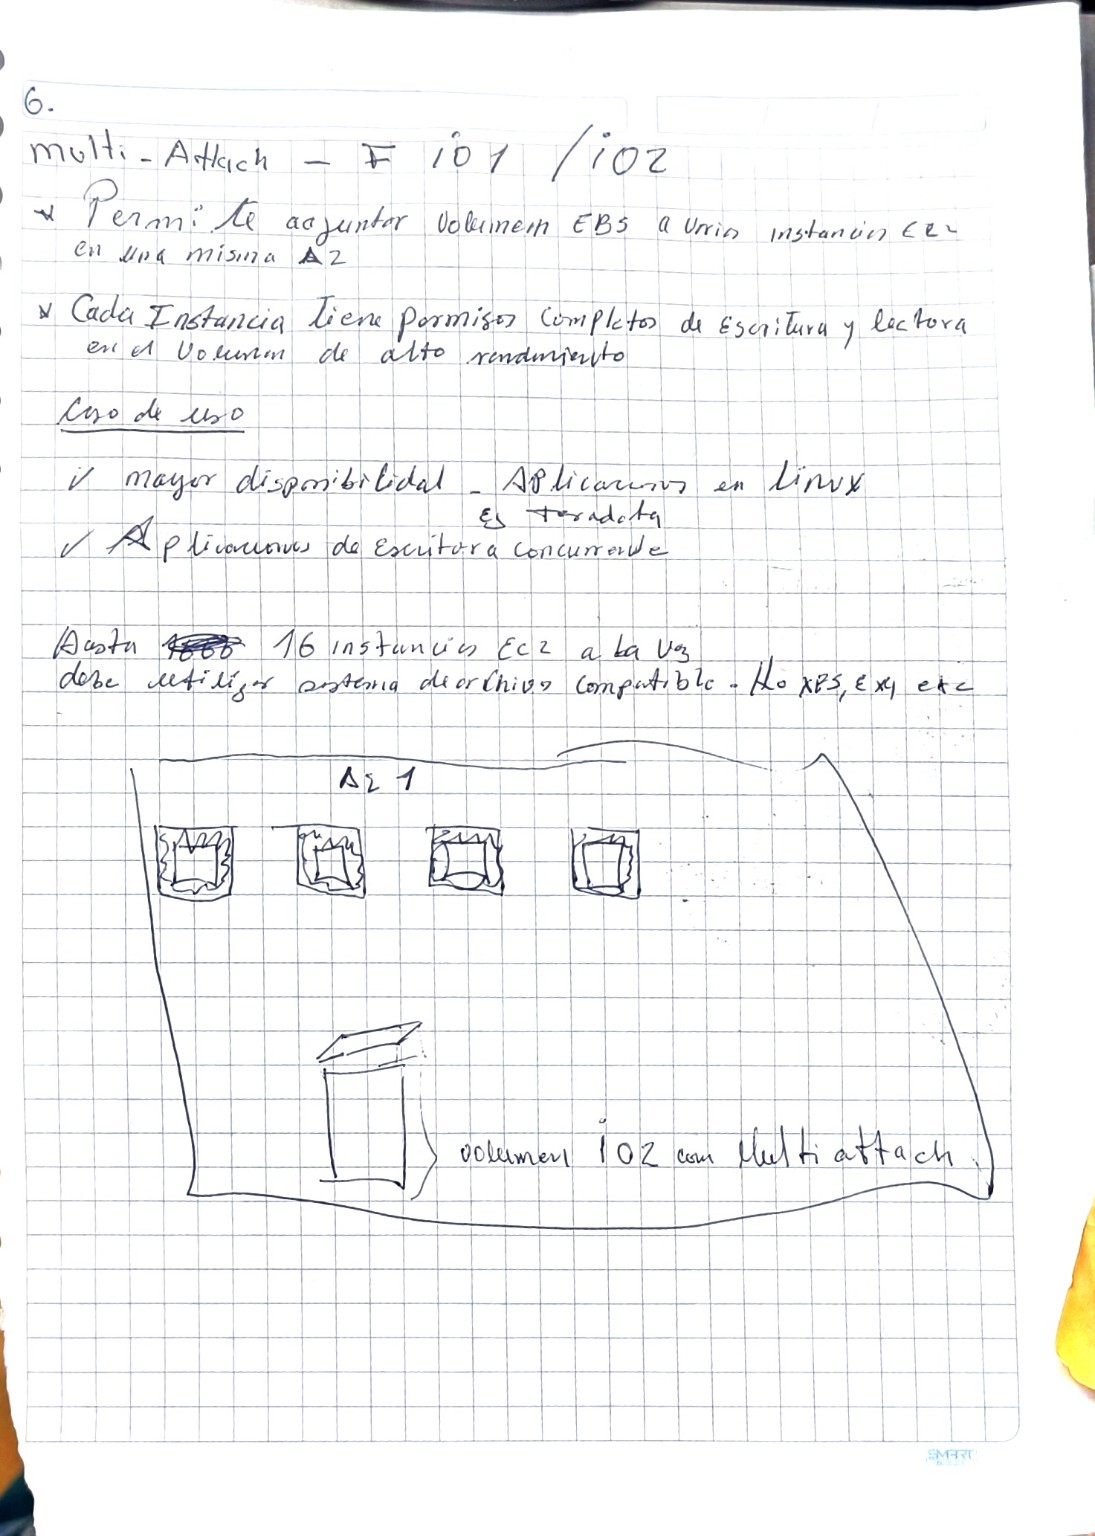 6.
Multi-Attach - F io1 / io2
* Permite aajuntar Volumen EBS a varias instancias EC2
en una misma AZ
* Cada Instancia tiene permisos completos de Escritura y lectora
en el Volumen de alto rendimiento
Caso de uso
✓ mayor disponibilidad - Aplicaciones en Linux
Ej teradata
✓ Aplicaciones de Escritura concurrente
Hasta 16 instancias EC2 a la vez
debe utilizar sistema de archivos compatible - No XFS, EX4 etc
Az 1
volumen io2 con Multi attach.
SMART